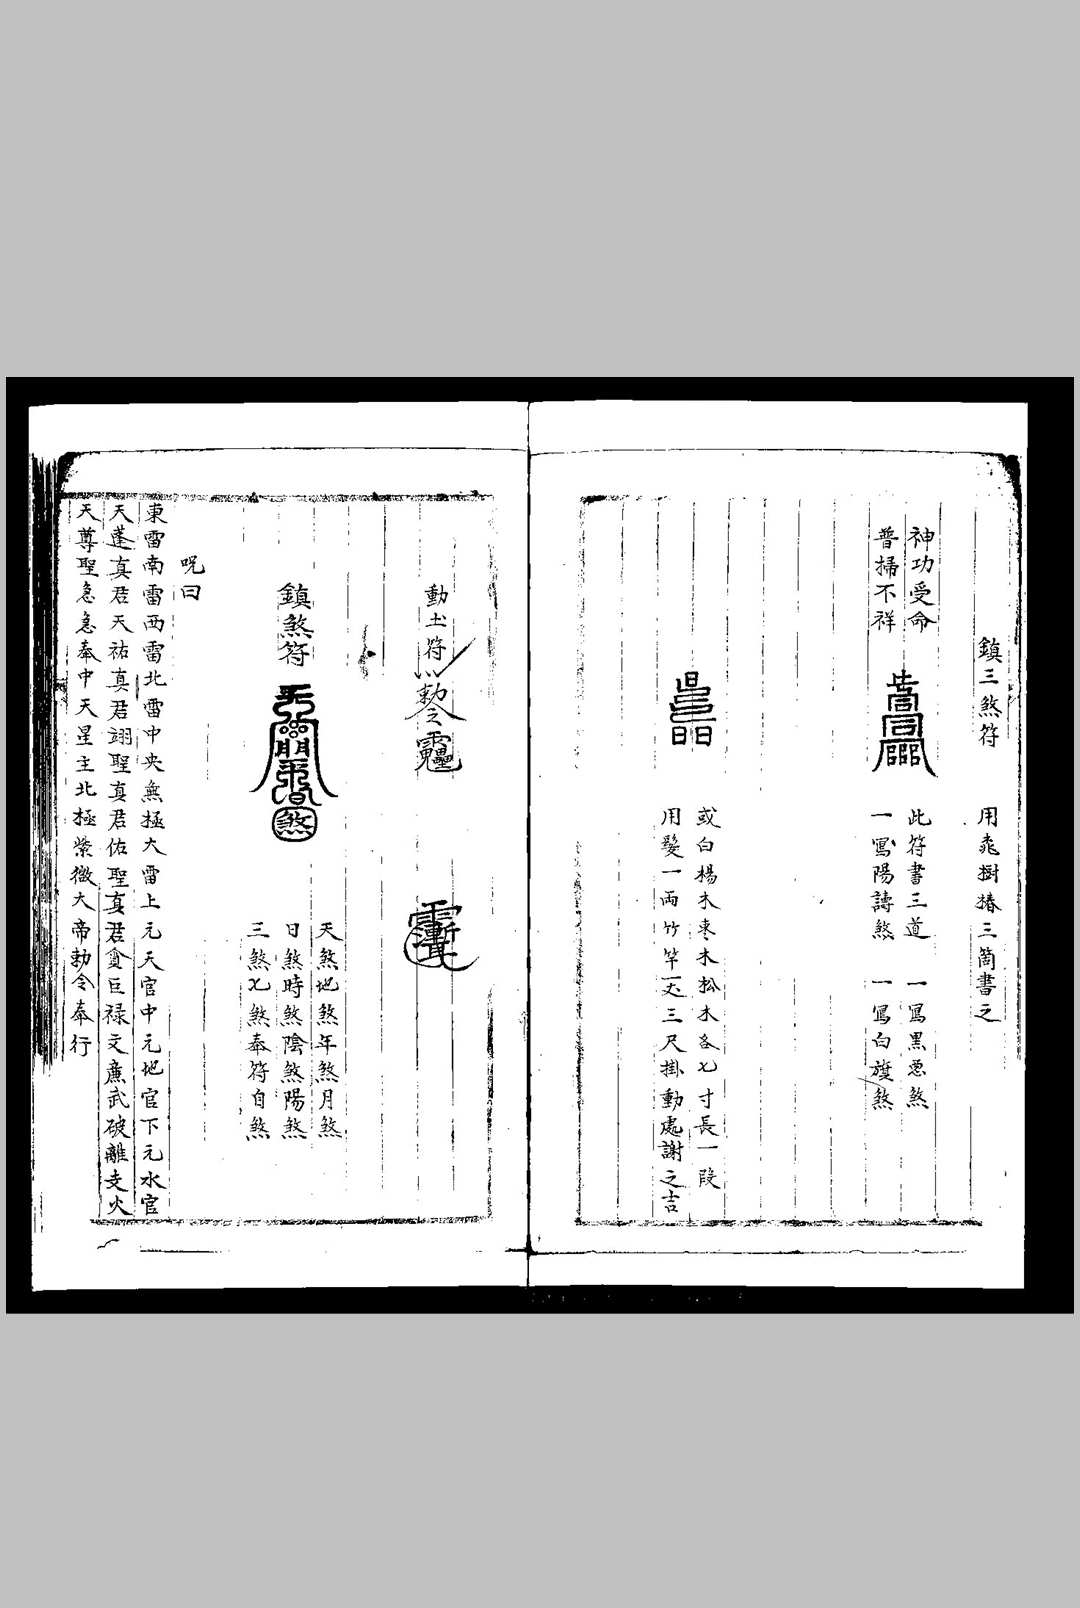 鎮三煞符
用桃樹椿三箇書之
神功受命
普掃不祥
此符書三道　一寫黑愳煞
一寫陽譸煞　一寫白旗煞
或白楊木枣木松木各七寸長一段
用髮一両竹竿一丈三尺掛動處謝之吉
動土符
勅令
鎮煞符
煞
天煞地煞年煞月煞
日煞時煞陰煞陽煞
三煞七煞奉符自煞
呪曰
東雷南雷西雷北雷中央無極大雷上元天官中元地官下元水官
天蓬真君天祐真君翊聖真君佑聖真君貪巨禄文㢘武破離支火
天尊聖急急奉中天星主北極紫微大帝勅令奉行